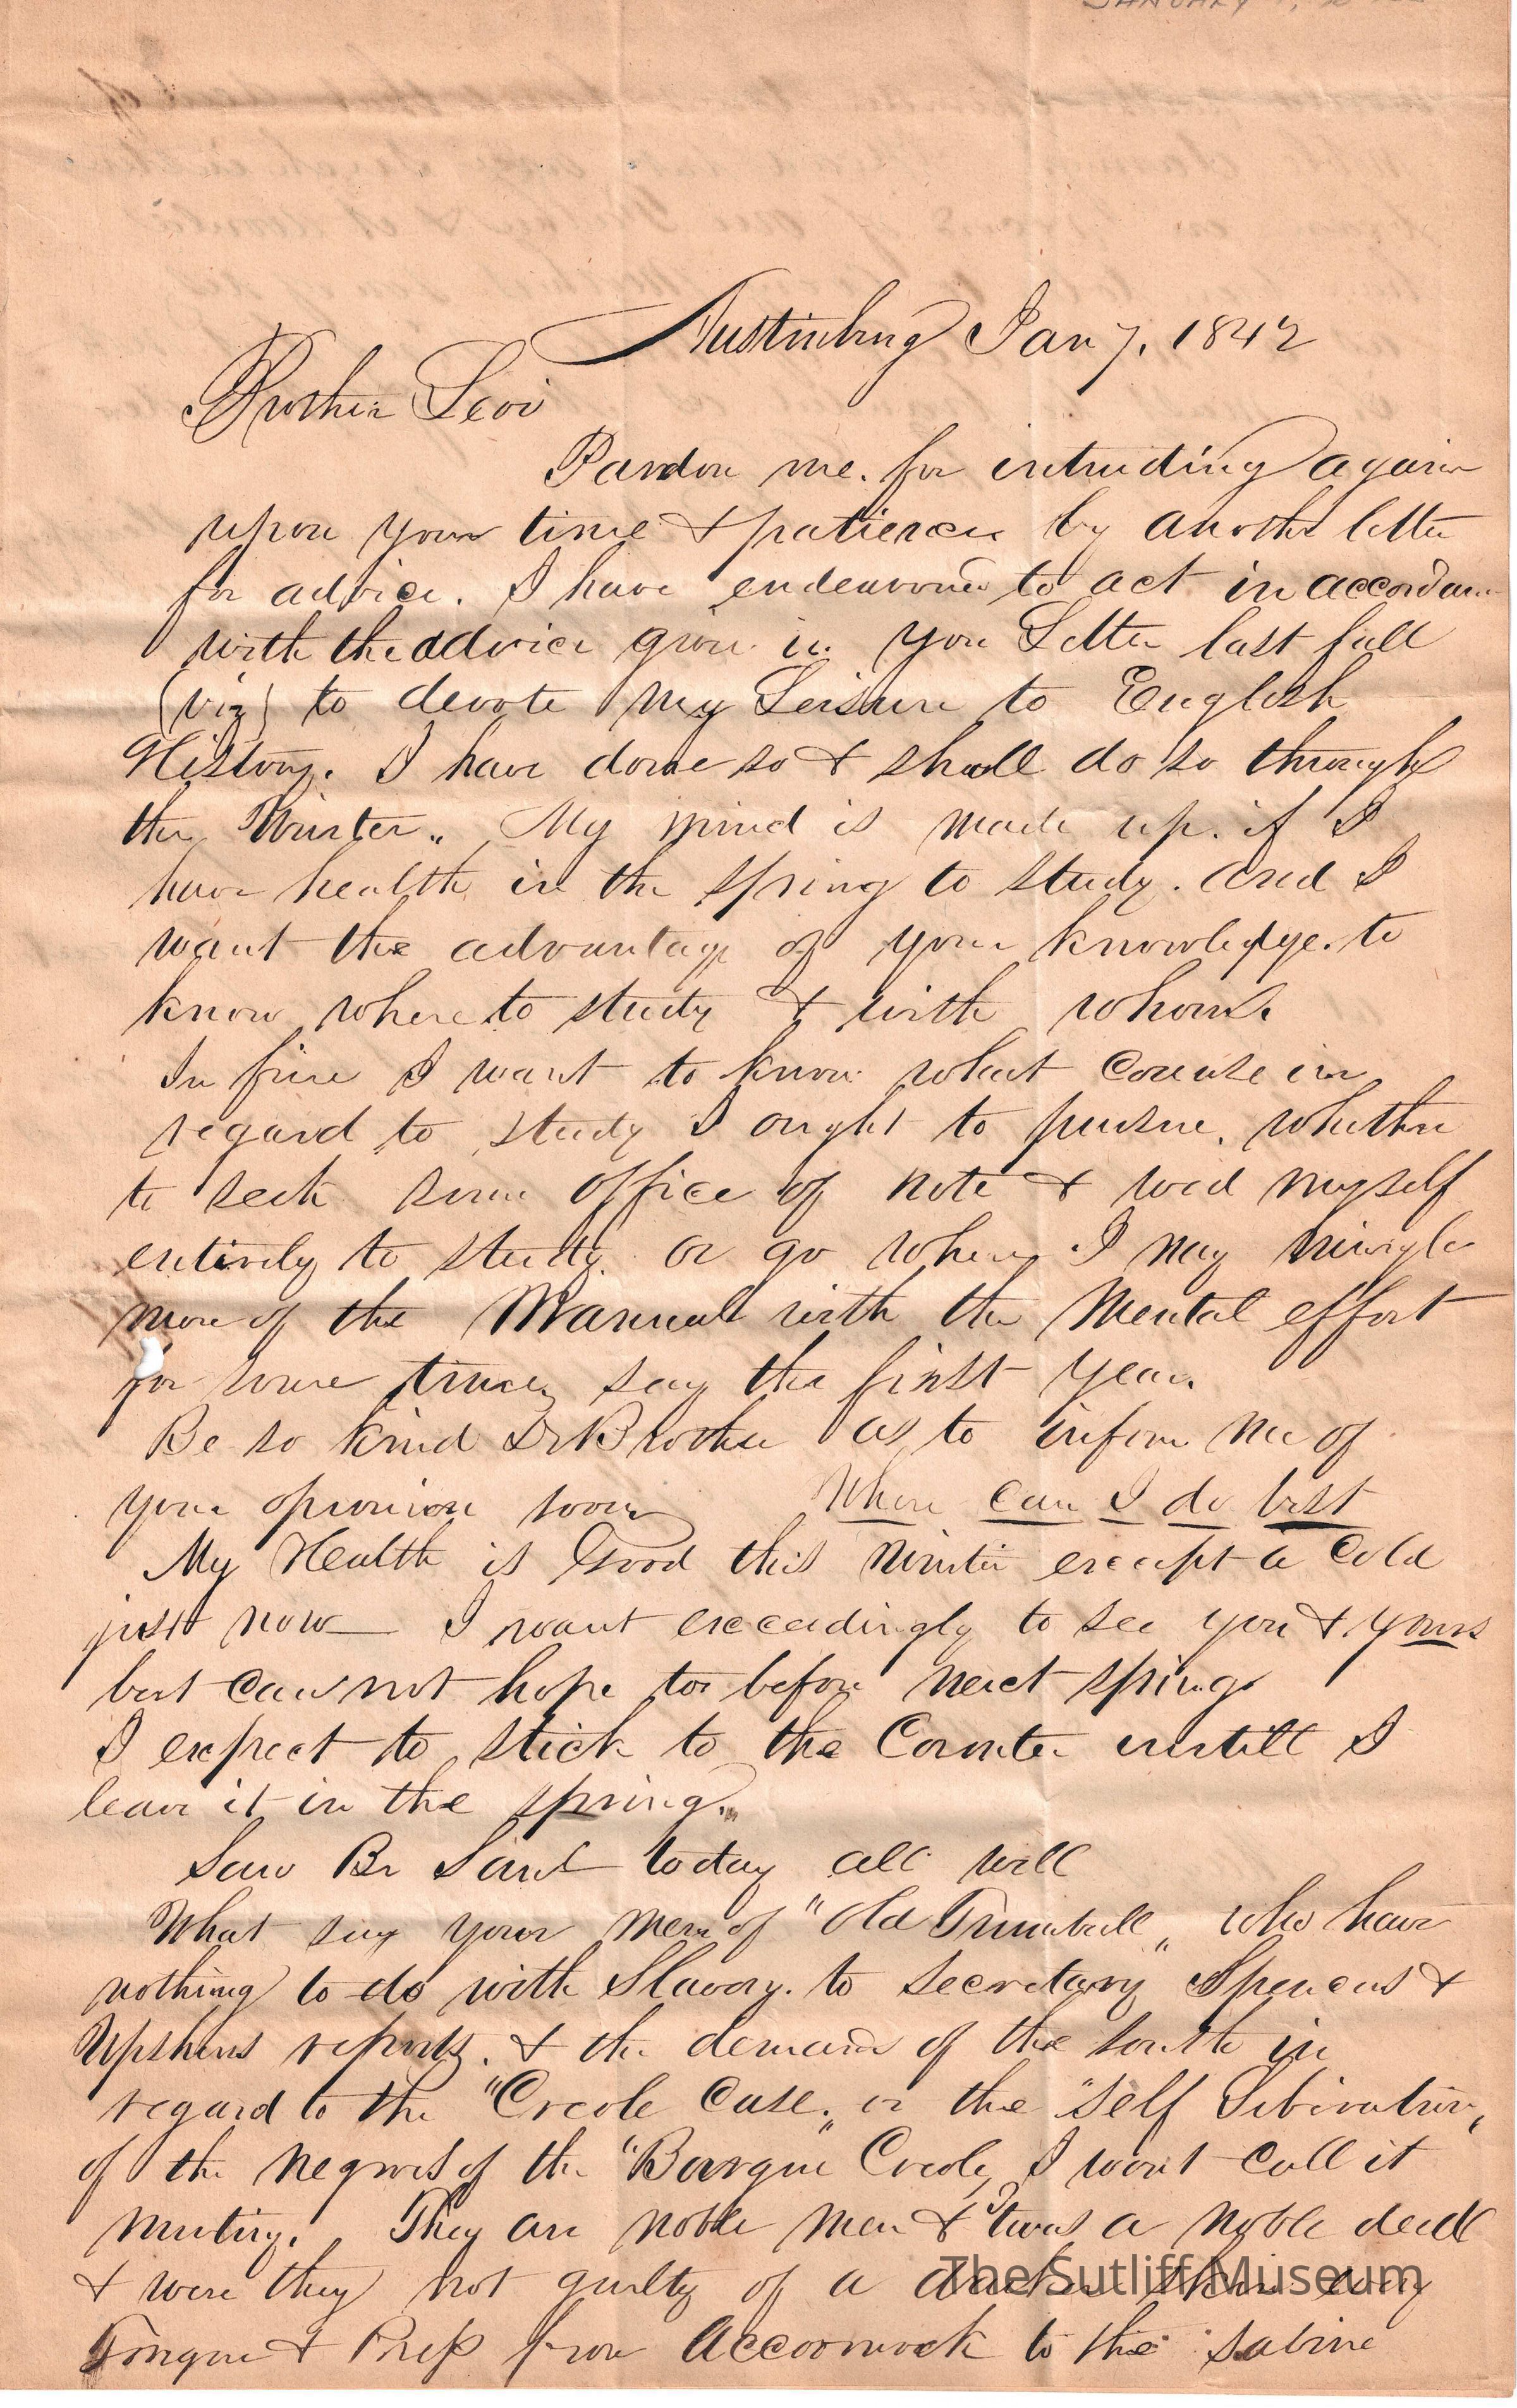 Austinburg Jan 7, 1842
Brother Levi
Pardon me. for intruding again
upon your time & patience by another letter
for advice. I have endeavored to act in accordance
with the advice given in your Letter last fall
(viz) to devote my Leisure to English
History. I have done so & shall do so through
the Winter. My mind is made up. if I
have health in the spring to study. And I
want the advantage of your knowledge. to
know where to study & with whom.
In fine I want to know what course in
regard to study I ought to pursue, whether
to seek some office of note & wed myself
entirely to study. or go where I may mingle
more of the Manual with the Mental effort
for some time, say the first year.
Be so kind Dr Brother as to inform me of
your opinion soon Where can I do best
My Health is Good this winter except a Cold
just now — I want exceedingly to see you & yours
but can not hope to before next spring.
I expect to stick to the Counter untill I
leave it in the spring.
Saw Br Saml today all well
What say your Men of "Old Trumbull" who have
nothing to do with Slavery. to Secretary Spencers &
Upshurs reports. & the demand of the South in
regard to the "Creole Case," or the "self Liberation"
of the negroes of the "Barque Creole, I wont call it
mutiny. They are noble men & 'twas a noble deed
& were they not guilty of a skin every
Tongue & Press from Accoomack to the Sabine
The Sutliff Museum